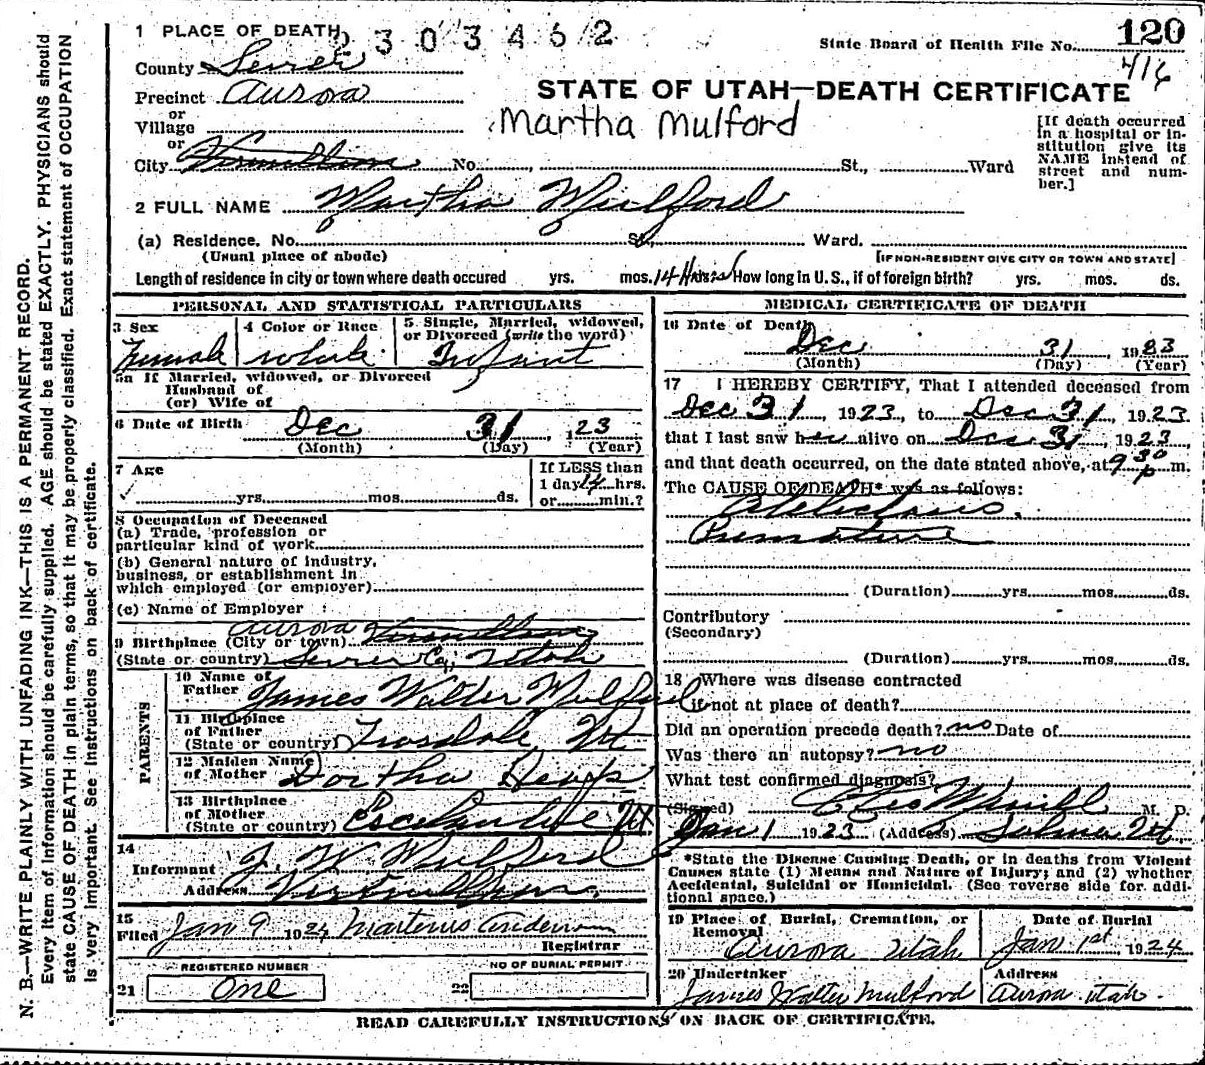 N. B.—WRITE PLAINLY WITH UNFADING INK—THIS IS A PERMANENT RECORD.
Every item of information should be carefully supplied. AGE should be stated EXACTLY. PHYSICIANS should
state CAUSE OF DEATH in plain terms, so that it may be properly classified. Exact statement of OCCUPATION
is very important. See instructions on back of certificate.
1 PLACE OF DEATH
2303462
State Board of Health File No. 120
416
County Sevier
Precinct Aurora
STATE OF UTAH—DEATH CERTIFICATE
or
Village
Martha Mulford
or
City Vermillion No. St., Ward
[If death occurred
in a hospital or in-
stitution give its
NAME instead of
street and num-
ber.]
2 FULL NAME Martha Mulford
(a) Residence. No. St., Ward.
(Usual place of abode)
[IF NON-RESIDENT GIVE CITY OR TOWN AND STATE]
Length of residence in city or town where death occured yrs. mos. 14 Hours How long in U. S., if of foreign birth? yrs. mos. ds.
PERSONAL AND STATISTICAL PARTICULARS
3 Sex
Female
4 Color or Race
white
5 Single, Married, widowed,
or Divorced (write the word)
Infant
5a If Married, widowed, or Divorced
Husband of
(or) Wife of
6 Date of Birth Dec 31, 1923
(Month) (Day) (Year)
7 Age
yrs. mos. ds.
If LESS than
1 day 14 hrs.
or min.?
8 Occupation of Deceased
(a) Trade, profession or
particular kind of work
(b) General nature of industry,
business, or establishment in
which employed (or employer)
(c) Name of Employer
Aurora
9 Birthplace (City or town) Vermillion
(State or country) Sevier Co, Utah
PARENTS
10 Name of
Father James Walter Mulford
11 Birthplace
of Father
(State or country) Ut
12 Maiden Name
of Mother Dortha Heaps
13 Birthplace
of Mother
(State or country) Escalante Ut
14
Informant J. W. Mulford
Address Vermillion
15
Filed Jan 9 1924 Martenus Anderson
Registrar
REGISTERED NUMBER
21 One
NO OF BURIAL PERMIT
22
MEDICAL CERTIFICATE OF DEATH
16 Date of Death
Dec 31, 1923
(Month) (Day) (Year)
17 I HEREBY CERTIFY, That I attended deceased from
Dec 31, 1923, to Dec 31, 1923
that I last saw her alive on Dec 31, 1923
and that death occurred, on the date stated above, at 9 30 p m.
The CAUSE OF DEATH* was as follows:
Atelectasis.
Premature
(Duration) yrs. mos. ds.
Contributory
(Secondary)
(Duration) yrs. mos. ds.
18 Where was disease contracted
if not at place of death?
Did an operation precede death? no Date of
Was there an autopsy? no
What test confirmed diagnosis?
(Signed) M. D.
Jan 1 1923 (Address) Salina Ut.
*State the Disease Causing Death, or in deaths from Violent
Causes state (1) Means and Nature of Injury; and (2) whether
Accidental, Suicidal or Homicidal. (See reverse side for addi-
tional space.)
19 Place of Burial, Cremation, or
Removal
Aurora Utah
Date of Burial
Jan 1st 1924
20 Undertaker
James Walter Mulford
Address
Aurora Utah.
READ CAREFULLY INSTRUCTIONS ON BACK OF CERTIFICATE.